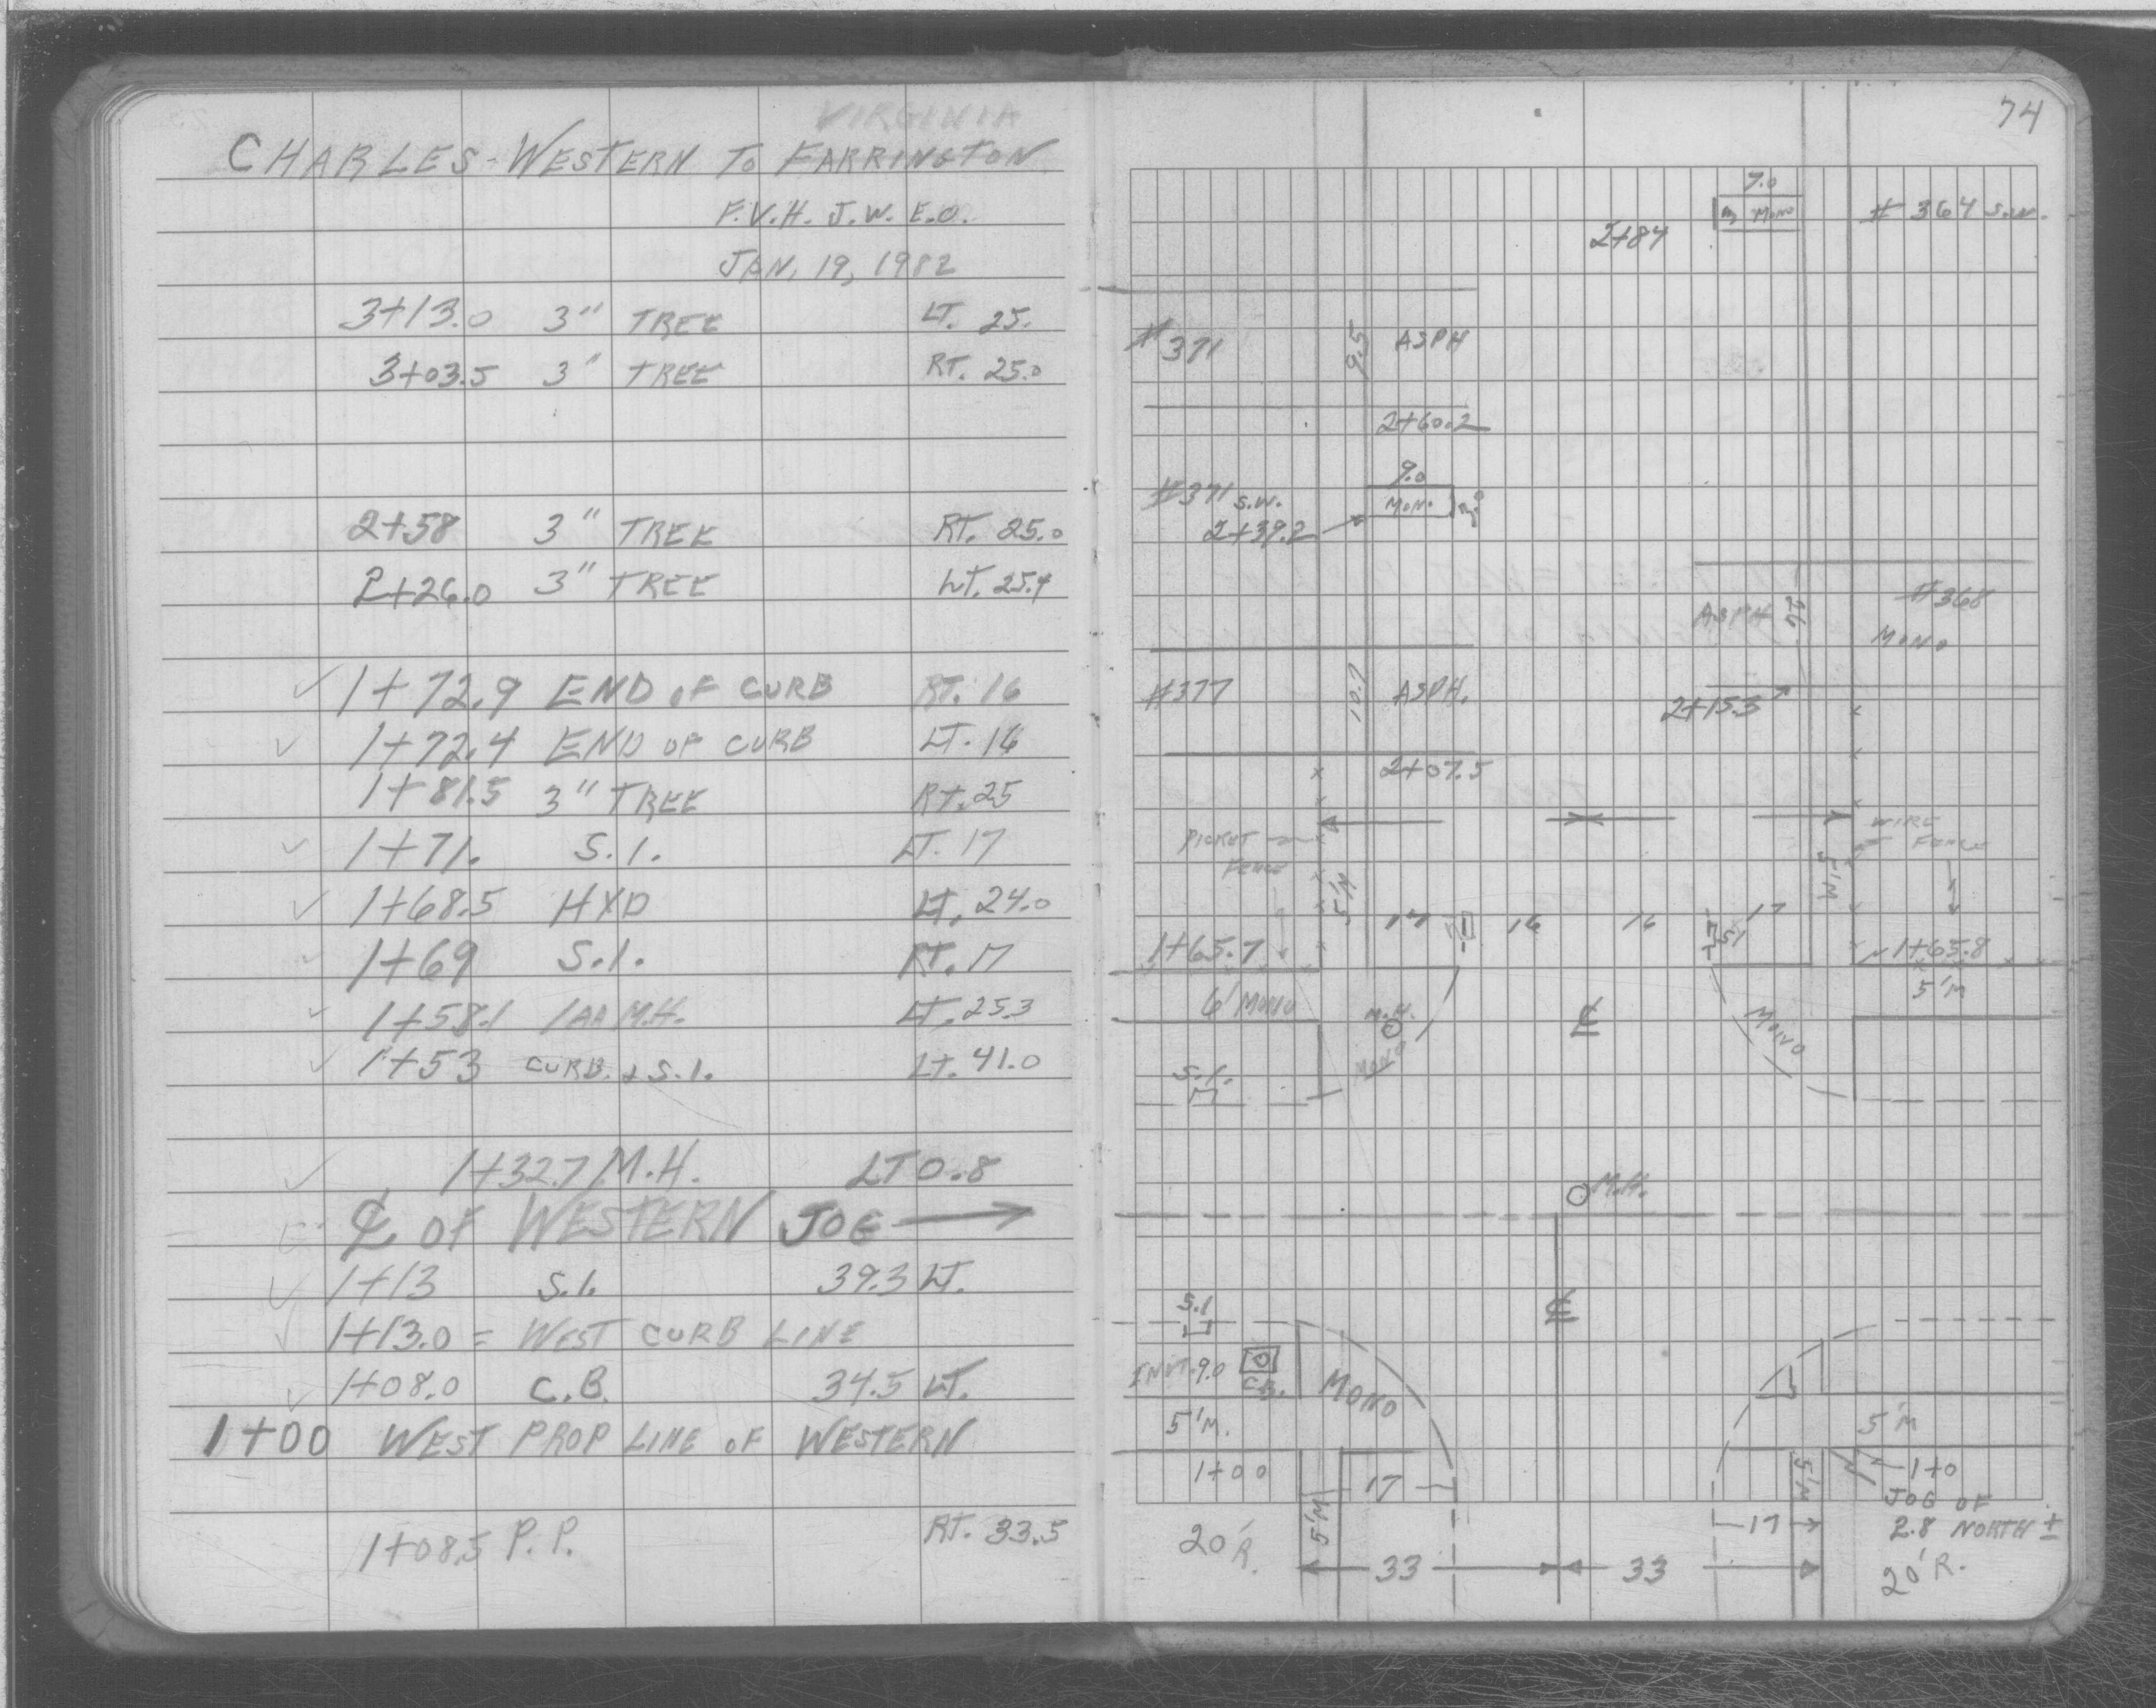 VIRGINIA
CHARLES-WESTERN TO FARRINGTON
F.V.H. J.W. E.O.
JAN. 19, 1982
3+13.0 3" TREE LT. 25.
3+03.5 3" TREE RT. 25.0
2+58 3" TREE RT. 25.0
2+26.0 3" TREE LT. 25.4
✓ 1+72.9 END OF CURB RT. 16
✓ 1+72.4 END OF CURB LT. 16
1+81.5 3" TREE RT. 25
✓ 1+71. S.I. LT. 17
✓ 1+68.5 HYD LT. 24.0
✓ 1+69 S.I. RT. 17
✓ 1+58.1 M.H. LT. 25.3
✓ 1+53 CURB. + S.I. LT. 41.0
✓ 1+32.7 M.H. LT 0.8
℄ OF WESTERN JOG →
✓ 1+13 S.I. 39.3 LT.
✓ 1+13.0 = WEST CURB LINE
✓ 1+08.0 C.B. 34.5 LT.
1+00 WEST PROP LINE OF WESTERN
1+08.5 P.P. RT. 33.5
74
7.0
MONO
# 364 S.W.
2+84
# 371
9.5
ASPH
2+60.2
9.0
#371 S.W.
MON.
2+39.2
#368
ASPH
MONO
#377
10.7
ASPH.
2+15.3
2+07.5
PICKET
FENCE
WIRE
FENCE
5'M
5'M
17
16
16
17
S.I
1+65.7
1+65.8
5'M
6' MONO
M.H.
MONO
℄
MONO
S.I.
M.H.
℄
S.I
INVT. 9.0
C.B.
MONO
5'M.
5'M
1+00
17
5'M
5'M
1+0
JOG OF
2.8 NORTH ±
17
20'R.
33
33
20'R.